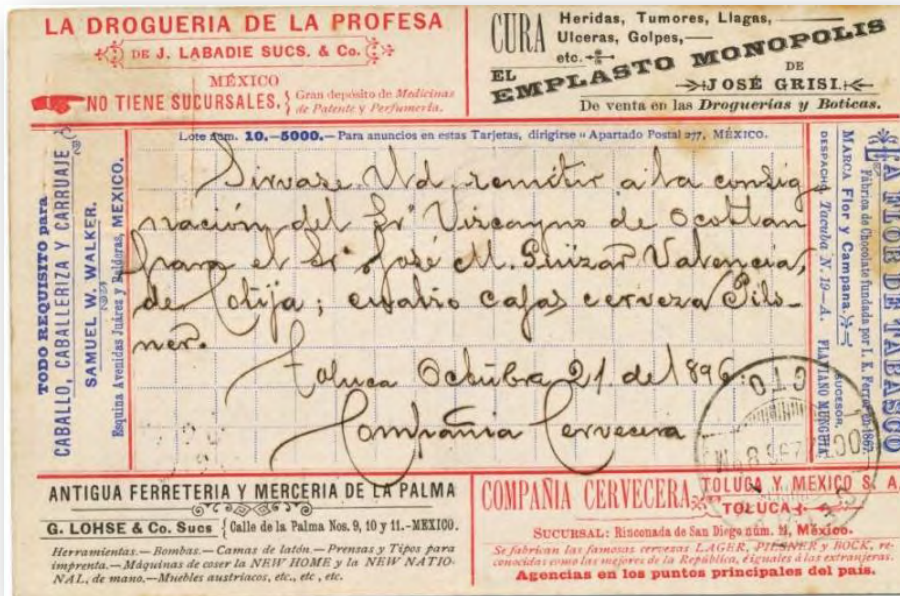 LA DROGUERIA DE LA PROFESA
DE J. LABADIE SUCS. & Co.
MÉXICO
NO TIENE SUCURSALES. { Gran depósito de Medicinas
de Patente y Perfumería.
CURA Heridas, Tumores, Llagas,
Ulceras, Golpes,
etc.
EL
EMPLASTO MONOPOLIS
DE
JOSÉ GRISI.
De venta en las Droguerias y Boticas.
Lote núm. 10.-5000.— Para anuncios en estas Tarjetas, dirigirse a Apartado Postal 277, MÉXICO.
TODO REQUISITO para
CABALLO, CABALLERIZA Y CARRUAJE
SAMUEL W. WALKER.
Esquina Avenidas Juárez y Balderas, MEXICO.
Sirvase Ud. remitir a la consig
nación del Sr. Viscayno de Ocotlan
para el Sr. José M. Guizar Valencia,
de Cotija; cuatro cajas cerveza Pils-
ner.
Toluca Octubre 21. de 1896.
Compañia Cervecera
LA FLOR DE TABASCO
Fábrica de Chocolate fundada por I. K. Ferrer en 1867.
MARCA Flor y Campana.
SUCESOR,
DESPACHO, Tacuba N. 19—A. FLAVIANO MUNGUIA
ANTIGUA FERRETERIA Y MERCERIA DE LA PALMA
G. LOHSE & Co. Sucs { Calle de la Palma Nos. 9, 10 y 11.-MEXICO.
Herramientas.—Bombas.—Camas de latón.—Prensas y Tipos para
imprenta.—Máquinas de coser la NEW HOME y la NEW NATIO-
NAL, de mano.—Muebles austriacos, etc., etc., etc.
COMPAÑIA CERVECERA TOLUCA Y MEXICO S. A.
TOLUCA
SUCURSAL: Rinconada de San Diego núm. México.
Se fabrican las famosas cervezas LAGER, PILSNER y BOCK, re-
conocidas como las mejores de la República, é iguales á las extranjeras.
Agencias en los puntos principales del país.